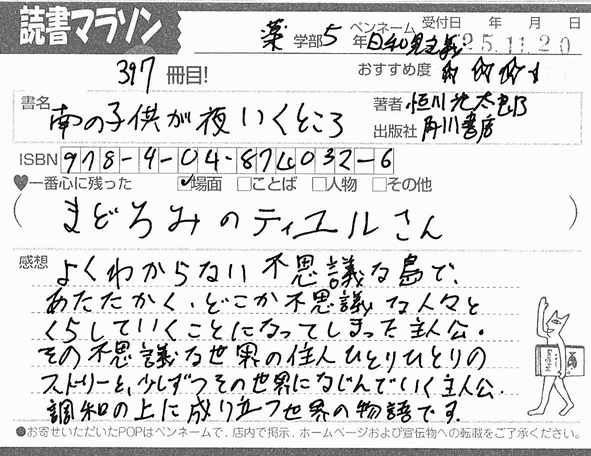 読書マラソン
薬 学部 5 年 ペンネーム 日和見主義 受付日 年 月 日 25.11.20
397 冊目! おすすめ度 ☆ ☆ ☆ ☆
書名 南の子供が夜いくところ 著者 恒川光太郎
出版社 角川書店
ISBN 978-4-04-874032-6
♥一番心に残った ☑場面 □ことば □人物 □その他
( まどろみのティユルさん )
感想 よくわからない不思議な島で、
あたたかく、どこか不思議な人々と
くらしていくことになってしまった主人公。
その不思議な世界の住人ひとりひとりの
ストーリーと、少しずつその世界になじんでいく主人公。
調和の上に成り立つ世界の物語です。
●お寄せいただいたPOPはペンネームで、店内で掲示、ホームページおよび宣伝物への転載をご了承ください。